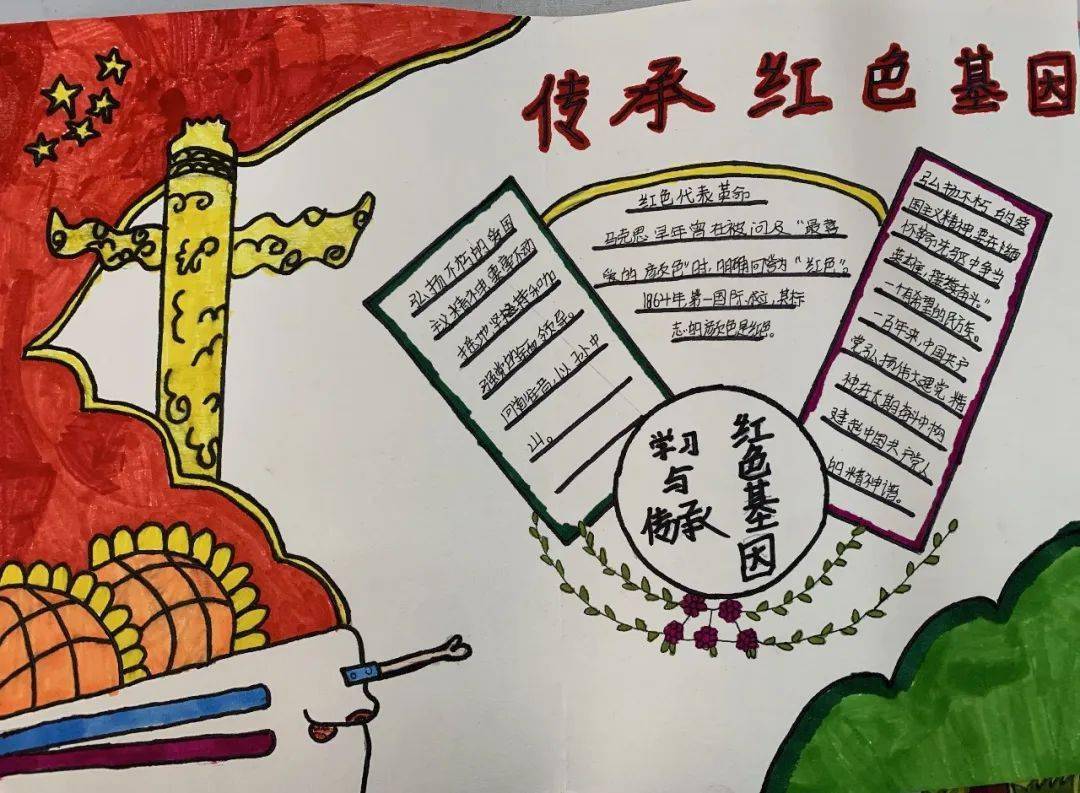 传承 红色基因
弘扬不朽的爱国
主义精神要毫不动
摇地坚持和加
强党的全面领导。
回首往昔,以 中
山。
红色代表革命
马克思早年曾在被问及“最喜
爱的颜色”时,明确回答为“红色”。
1864年第一国际成立,其标
志的颜色是红色。
弘扬不朽的爱
国主义精神要在缅
怀革命先烈中争当
英雄,
一个有希望的民族。
一百年来,中国共产
党弘扬伟大建党精
神在长期奋斗中构
建起中国共产党人
的精神谱。
学习
与
传承
红色基因